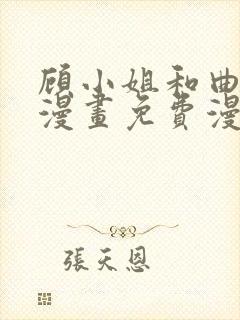 顾小姐和曲
漫畫免費漫
張天恩